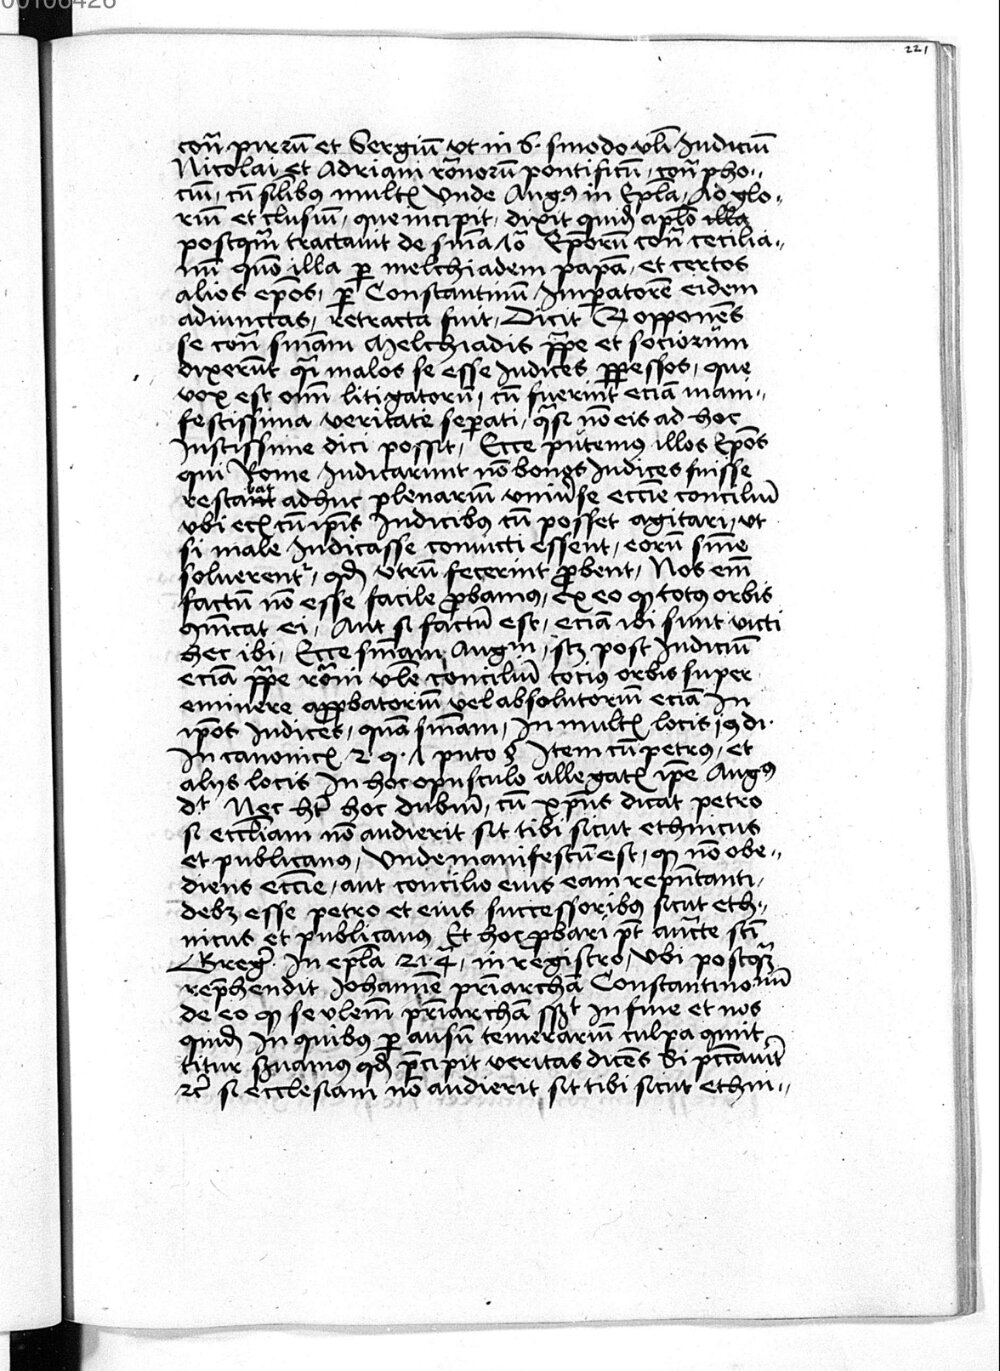 00106426
221
cont̄ pirrū et Sergiū vt in 6. sinodo vl̄i Iudiciū
Nicolai et Adriani rōnorū pontificū, cont̄ pho-
ciū, cū sīlibus multis Vnde Augꝰ in Ep̄la, Ad glo-
riū et elusiū, que incipit, dixit quidē apl̄o illa
postqm̄ tractauit de sn̄ia 70 Ep̄orū cont̄ cecilia-
nū quō illa ꝑ melchiadem papā, et certos
alios ep̄os, ꝑ Constantinū Imꝑatorē eidem
adiunctas, retracta fuit, Dicit ꝙ opponēs
se cont̄ sn̄iam Melchiadis pp̄e et sociorum
dixerūt qr̄ malos se esse Iudices ꝑpessos, que
vox est oīm litigatorū, cū fuerint eciā mani-
festissima veritate seꝑati, qͣsi nō eis ad hoc
Iustissime dici possit, Ecce putemꝰ illos Ep̄os
qui Rome Iudicarunt nō bonos Iudices fuisse
restabat adhuc plenariū vniūse ecc̄ie conciliū
vbi eciā cū ip̄is Iudicibꝰ cā posset agitari, vt
si male Iudicasse conuicti essent, eorū sn̄ie
soluerent̄, qd̄ vtrū fecerint ꝓbent, Nos em̄
factū nō esse facile ꝓbamꝰ, ex eo ꝙ totꝰ orbis
ꝯm̄icat ei, Aut si factū est, eciā ibi sunt victi
hec ibi, Ecce sn̄iam Augꝰni, scꝫ post Iudiciū
eciā pp̄e rōni vl̄e conciliū tocius orbis super
eminere apꝓbatoriū vel absolutoriū eciā In
ip̄os Iudices, quā sn̄iam, In multis locis
In canonicis 2 q. 7 puto § Item cū petrus, et
alijs locis In hoc opusculo allegatis ip̄e Augꝰ
dt̄ Nec hꝫ hoc dubiū, cū xp̄us dicat petro
si eccl̄iam nō audierit sit tibi sicut ethnicus
et publicanꝰ, Vnde manifestū est, ꝙ nō obe-
diens ecc̄ie, aut concilio eius eam rep̄ntanti,
debꝫ esse petro et eius successoribꝰ sicut eth-
nicus et publicanꝰ Et hoc ꝓbari pt̄ aucte sc̄i
Greg̃ In ep̄la 214, in registro, Vbi postqͣꝫ
rep̄hendit Iohannē pr̄iarchā Constantinonū
de eo ꝙ se vl̄em pr̄iarchā In fine et nos
quidē In quibꝰ ꝑ ausū temerariū culpa ꝯmit
titur ẜuamꝰ qd̄ p̄cipit veritas dicēs Si pcc̄auit
⁊c̄ si ecclesiam nō audierit sit tibi sicut ethni-